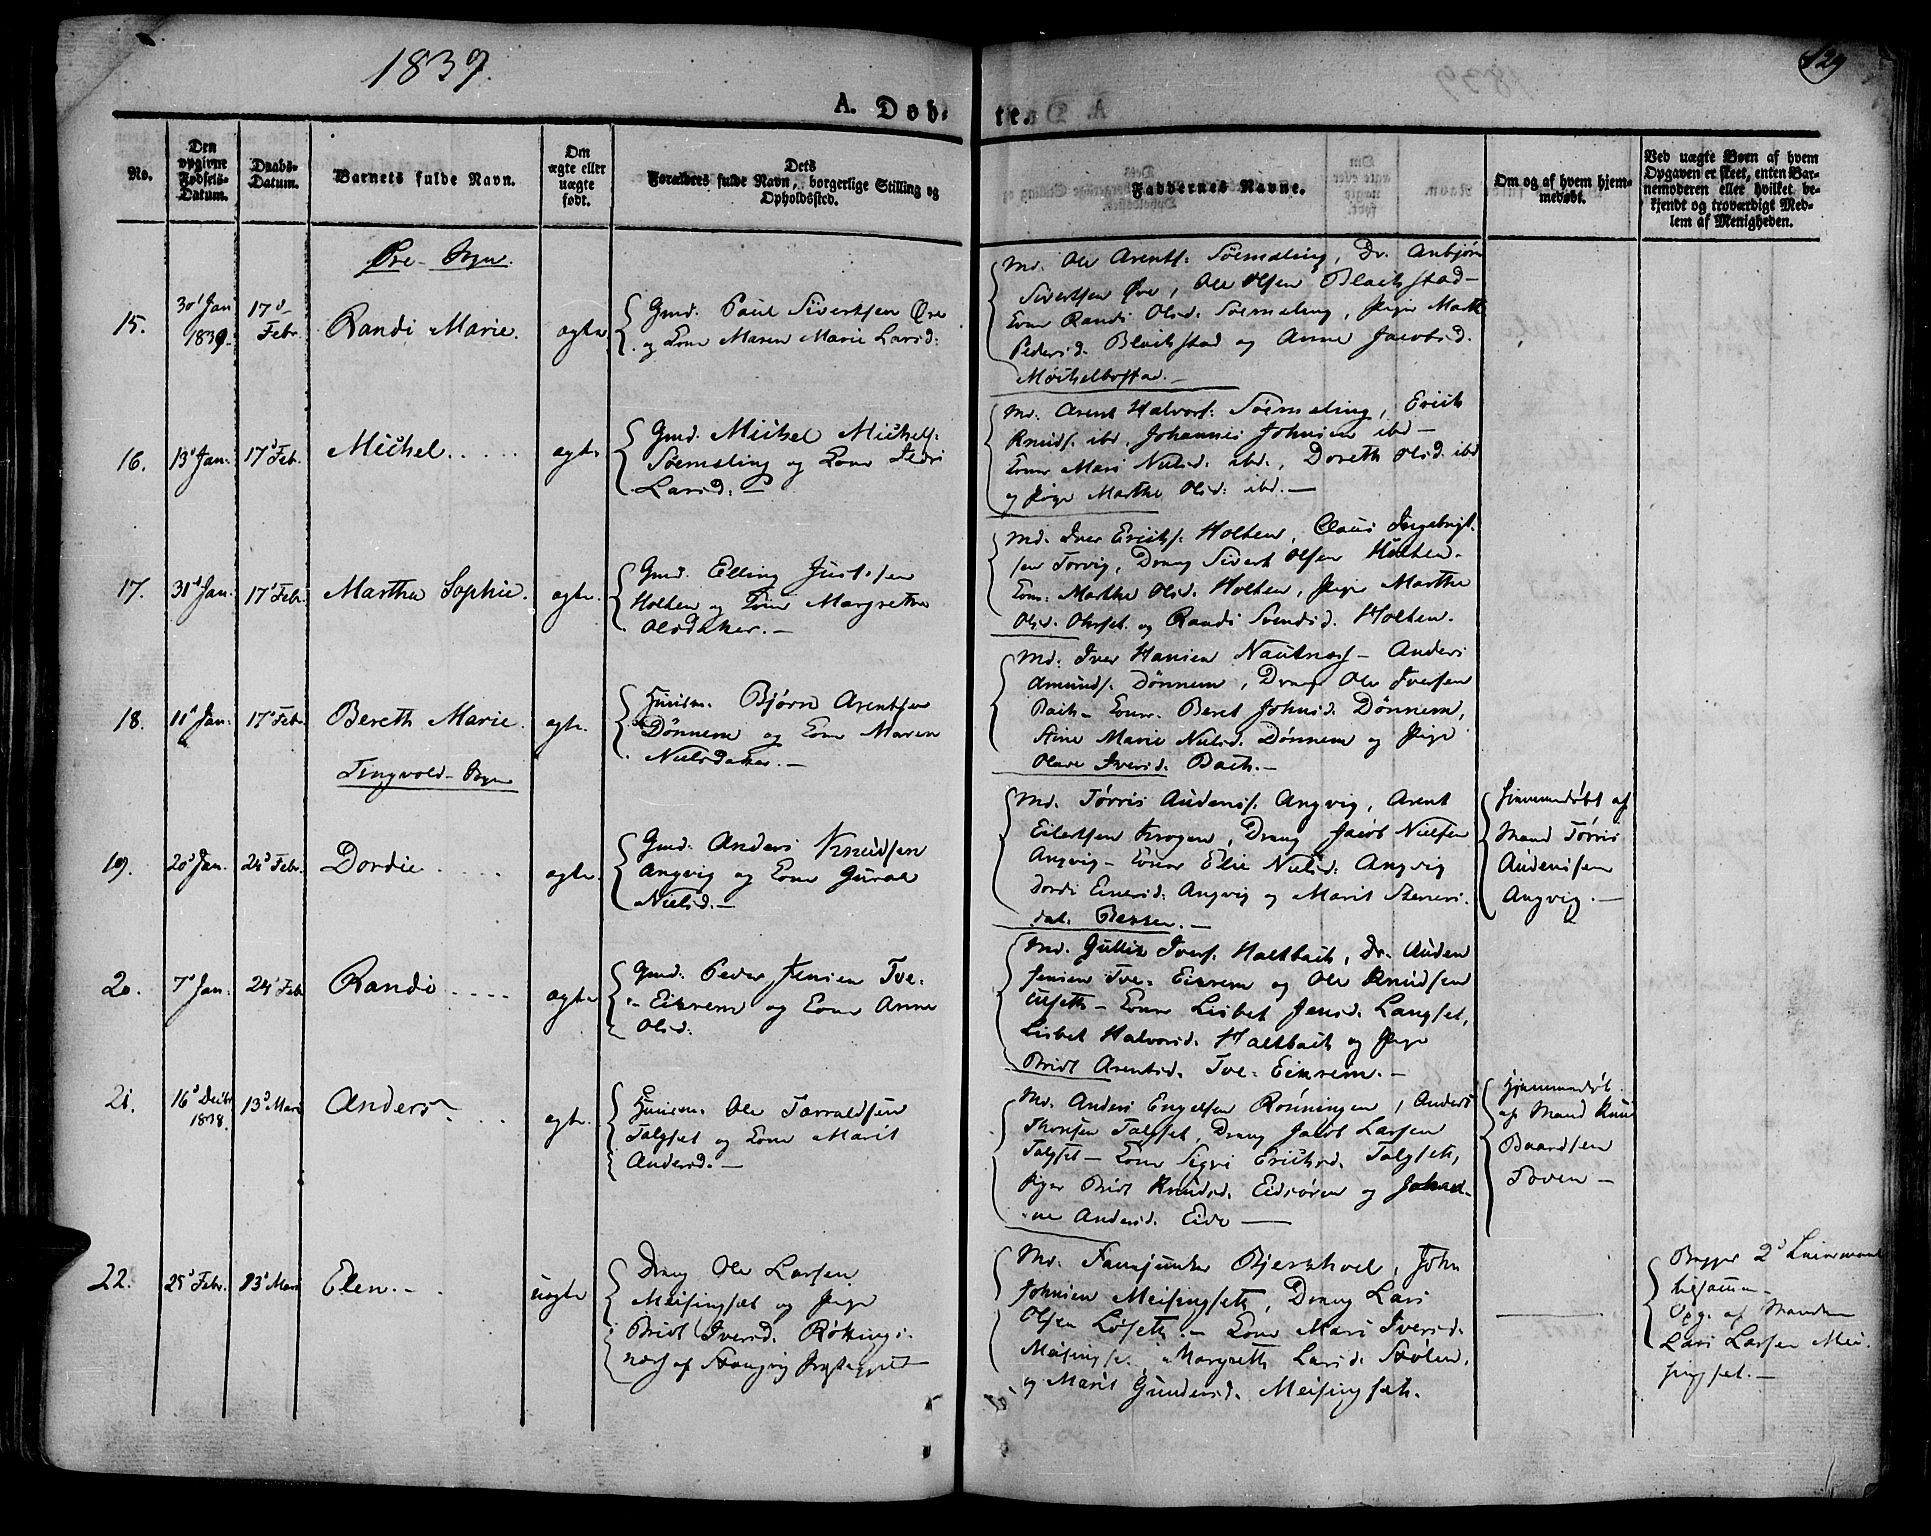 1839.
129
A. Døb-
te.
No.
Den
opgivne
Fødsels-
Datum.
Daabs-
Datum.
Barnets fulde Navn.
Om
ægte eller
uægte
født.
Dets
Forældres fulde Navn, borgerlige Stilling og
Opholdssted.
Faddernes Navne.
Om og af hvem hjem-
medøbt.
Ved uægte Børn af hvem
Opgaven er skeet, enten Bar-
nemoderen eller hvilket be-
kjendt og troværdigt Med-
lem af Menigheden.
Øre Sogn.
15.
30' Jan
1839.
17d
Febr.
Randi Marie.
ægte
Gmd. Paul Sivertsen Øre
og Kone Maren Marie Larsd:
Md. Ole Arents: Söemeling, Dr. Anbjørn
Sivertsen Øre, Ole Olsen Blackstad -
Koner Randi Olsd. Söemeling, Pige Marth
Pedersd. Blackstad og Anne Jacobsd.
Möickelbostad. -
16.
13d Jan.
17d Feb.
Michel . . . . .
ægte
Gmd. Michel Michels:
Söemeling og Kone
Larsd: -
Md. Arent Halvors: Söemeling, Erich
Knuds. ibd, Johannes Johnsen ibd -
Koner Mari Nielsd. ibd., Doreth Olsd. ibd
og Pige Marthe Olsd: ibd. -
17.
31d Jan.
17d Febr.
Martha Sophie.
ægte.
Gmd. Elling Justsen
Holten og Kone Margretha
Olsdatter. -
Md. Iver Erichs. Holten, Claus Ingebrigt-
sen Torvig, Dreng Sivert Olsen Holten.
Kon. Marthe Olsd. Holten, Pige Marthe
Olsd. Ohrset. og Randi Svendsd. Holten.
18.
11d Jan.
17d Febr.
Bereth Marie.
ægte.
Huusm. Bjørn Arentsen
Dönnem og Kone Maren
Nielsdatter. -
Md. Iver Hansen Nautnæs - Anders
Amunds. Dönnem, Dreng Ole Iversen
Bach - Koner. Beret Johnsd. Dönnem,
Stine Marie Nielsd. Dönnem og Pige
Olave Iversd. Bach. -
Tingvold Sogn
19.
20d Jan.
24d Febr.
Dordie . . . . .
ægte.
Gmd. Anders Knudsen
Angvig og Kone Guroe
Nielsd. -
Md. Törris Audens. Angvig, Arent
Eilertsen Krogen, Dreng Jacob Nielsen
Angvig - Koner Elie Nielsd. Angvig
Dordi Einersd. Angvig og Marit Steners-
dat. -
Hjemmedøbt af
Mand Törris
Audensen
Angvig. -
20.
7d Jan.
24d Feb
Randi . . . .
ægte
Gmd. Peder Jensen Tve-
Eikrem og Kone Anne
Olsd.
Md. Gullik Ivers. Holtbach, Dr. Auden
Jensen Tve- Eikrem og Ole Knudsen
Useth - Koner Lisbet Jensd. Langset,
Lisbet Halvorsd. Holtbach og Pige
Bridt Arentsd. Tve- Eikrem. -
21.
16d Decbr
1838.
13d Mars
Anders
ægte.
Huusm. Ole Torraldsen
Talgset og Kone Marit
Andersd. -
Md. Anders Engelsen Rönningen, Anders
Thorsen Talgset, Dreng Jacob Larsen
Talgset - Kone Sigri Erichsd. Talgseth,
Piger Bridt Knudsd. Eidsören og Johan-
ne Andersd. Eide -
Hjemmedøbt
af Mand Knud
Baardsen
Toven -
22.
25d Febr.
13d Mars
Elen. -
uægte
Dreng Ole Larsen
Meisingset og Pige
Bridt Iversd. Røkkings-
næs af Stangvig Præstegjeld
Md. Fanejunker Bjerkhoel, John
Johnsen Meisingseth, Dreng Lars
Olsen Löseth. - Kone Mari Iversd.
Meisingset. Margreth Larsd. Stolen.
og Marit Gundersd. Meisingseth.
Begges 2d Leiermaal
tilsamm-
Opg. af Manden
Lars Larsen Mei-
singset. -